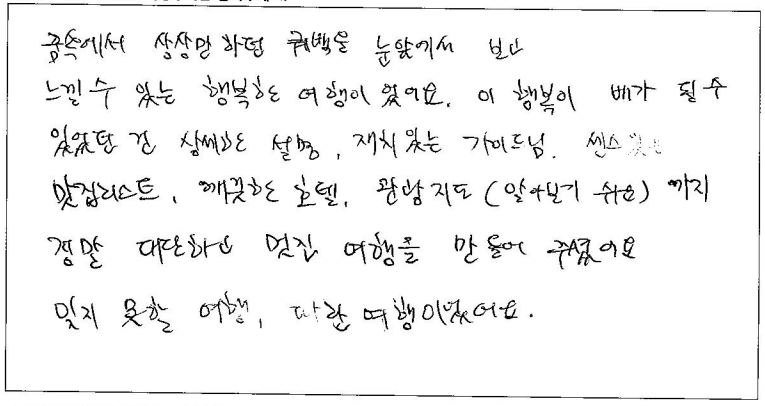 꿈속에서 상상만 하던 퀘백을 눈앞에서 보고
느낄 수 있는 행복한 여행이었어요. 이 행복이 배가 될 수
있었던 건 상세한 설명, 재치있는 가이드님, 센스있는
맛집리스트, 깨끗한 호텔, 관광지도 (알아보기 쉬운) 까지
정말 대단하고 멋진 여행을 만들어 주셨어요
잊지 못할 여행, 여행이었어요.